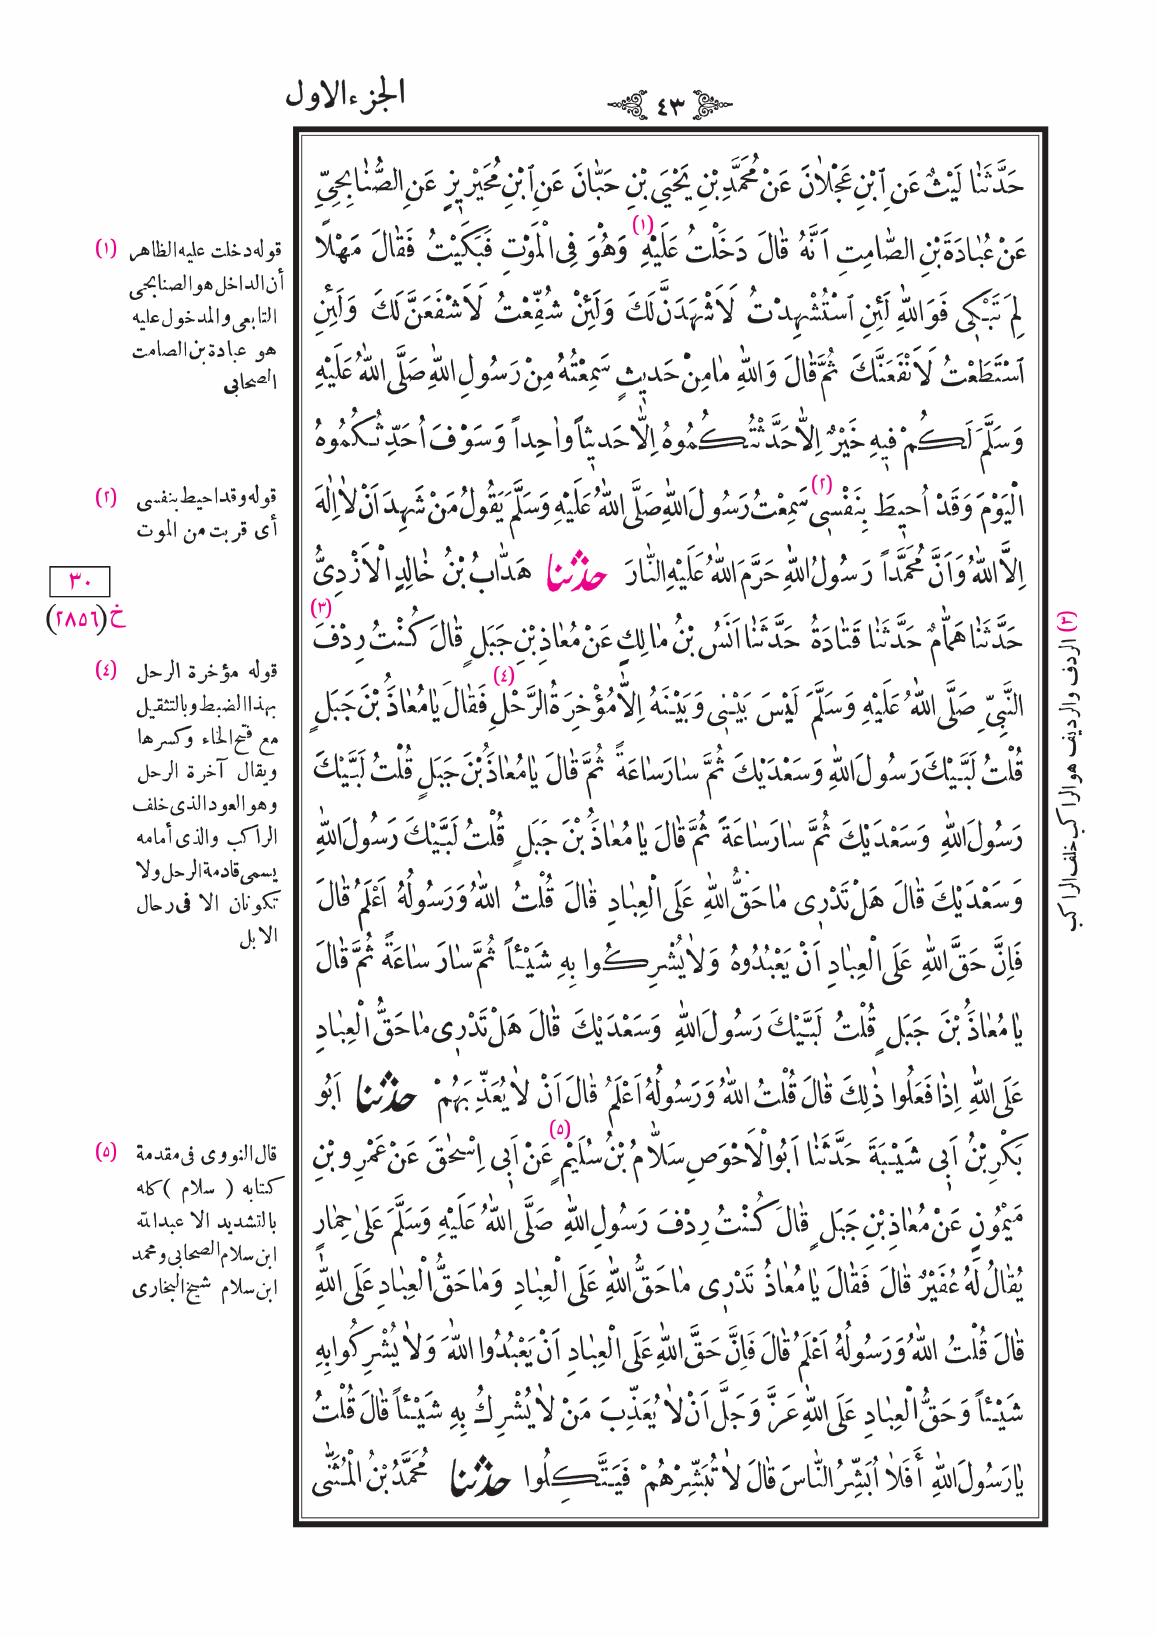 الجزء الاول
٤٣
حَدَّثَنَا لَيْثٌ عَنِ ابْنِ عَجْلَانَ عَنْ مُحَمَّدِ بْنِ يَحْيَى بْنِ حَبَّانَ عَنِ ابْنِ مُحَيْرِيزٍ عَنِ الصُّنَابِحِيِّ
عَنْ عُبَادَةَ بْنِ الصَّامِتِ اَنَّهُ قَالَ دَخَلْتُ عَلَيْهِ (١) وَهُوَ فِى الْمَوْتِ فَبَكَيْتُ فَقَالَ مَهْلًا
لِمَ تَبْكِى فَوَاللهِ لَئِنِ اسْتُشْهِدْتُ لَاَشْهَدَنَّ لَكَ وَلَئِنْ شُفِّعْتُ لَاَشْفَعَنَّ لَكَ وَلَئِنِ
اسْتَطَعْتُ لَاَنْفَعَنَّكَ ثُمَّ قَالَ وَاللهِ مَا مِنْ حَدِيثٍ سَمِعْتُهُ مِنْ رَسُولِ اللهِ صَلَّى اللهُ عَلَيْهِ
وَسَلَّمَ لَكُمْ فِيهِ خَيْرٌ اِلَّا حَدَّثْتُكُمُوهُ اِلَّا حَدِيثاً وَاحِداً وَسَوْفَ اُحَدِّثُكُمُوهُ
الْيَوْمَ وَقَدْ اُحِيطَ بِنَفْسِى (٢) سَمِعْتُ رَسُولَ اللهِ صَلَّى اللهُ عَلَيْهِ وَسَلَّمَ يَقُولُ مَنْ شَهِدَ اَنْ لَا اِلٰهَ
اِلَّا اللهُ وَاَنَّ مُحَمَّداً رَسُولُ اللهِ حَرَّمَ اللهُ عَلَيْهِ النَّارَ حدثنا هَدَّابُ بْنُ خَالِدٍ الْاَزْدِىُّ
حَدَّثَنَا هَمَّامٌ حَدَّثَنَا قَتَادَةُ حَدَّثَنَا اَنَسُ بْنُ مَالِكٍ عَنْ مُعَاذِ بْنِ جَبَلٍ قَالَ كُنْتُ رِدْفَ (٣)
النَّبِىِّ صَلَّى اللهُ عَلَيْهِ وَسَلَّمَ لَيْسَ بَيْنِى وَبَيْنَهُ اِلَّا مُؤْخِرَةُ الرَّحْلِ (٤) فَقَالَ يَا مُعَاذُ بْنَ جَبَلٍ
قُلْتُ لَبَّيْكَ رَسُولَ اللهِ وَسَعْدَيْكَ ثُمَّ سَارَ سَاعَةً ثُمَّ قَالَ يَا مُعَاذُ بْنَ جَبَلٍ قُلْتُ لَبَّيْكَ
رَسُولَ اللهِ وَسَعْدَيْكَ ثُمَّ سَارَ سَاعَةً ثُمَّ قَالَ يَا مُعَاذُ بْنَ جَبَلٍ قُلْتُ لَبَّيْكَ رَسُولَ اللهِ
وَسَعْدَيْكَ قَالَ هَلْ تَدْرِى مَا حَقُّ اللهِ عَلَى الْعِبَادِ قَالَ قُلْتُ اللهُ وَرَسُولُهُ اَعْلَمُ قَالَ
فَاِنَّ حَقَّ اللهِ عَلَى الْعِبَادِ اَنْ يَعْبُدُوهُ وَلَا يُشْرِكُوا بِهِ شَيْئاً ثُمَّ سَارَ سَاعَةً ثُمَّ قَالَ
يَا مُعَاذُ بْنَ جَبَلٍ قُلْتُ لَبَّيْكَ رَسُولَ اللهِ وَسَعْدَيْكَ قَالَ هَلْ تَدْرِى مَا حَقُّ الْعِبَادِ
عَلَى اللهِ اِذَا فَعَلُوا ذٰلِكَ قَالَ قُلْتُ اللهُ وَرَسُولُهُ اَعْلَمُ قَالَ اَنْ لَا يُعَذِّبَهُمْ حدثنا اَبُو
بَكْرِ بْنُ اَبِى شَيْبَةَ حَدَّثَنَا اَبُو الْاَحْوَصِ سَلَّامُ بْنُ سُلَيْمٍ (٥) عَنْ اَبِى اِسْحٰقَ عَنْ عَمْرِو بْنِ
مَيْمُونٍ عَنْ مُعَاذِ بْنِ جَبَلٍ قَالَ كُنْتُ رِدْفَ رَسُولِ اللهِ صَلَّى اللهُ عَلَيْهِ وَسَلَّمَ عَلَى حِمَارٍ
يُقَالُ لَهُ عُفَيْرٌ قَالَ فَقَالَ يَا مُعَاذُ تَدْرِى مَا حَقُّ اللهِ عَلَى الْعِبَادِ وَمَا حَقُّ الْعِبَادِ عَلَى اللهِ
قَالَ قُلْتُ اللهُ وَرَسُولُهُ اَعْلَمُ قَالَ فَاِنَّ حَقَّ اللهِ عَلَى الْعِبَادِ اَنْ يَعْبُدُوا اللهَ وَلَا يُشْرِكُوا بِهِ
شَيْئاً وَحَقُّ الْعِبَادِ عَلَى اللهِ عَزَّ وَجَلَّ اَنْ لَا يُعَذِّبَ مَنْ لَا يُشْرِكُ بِهِ شَيْئاً قَالَ قُلْتُ
يَا رَسُولَ اللهِ أَفَلَا اُبَشِّرُ النَّاسَ قَالَ لَا تُبَشِّرْهُمْ فَيَتَّكِلُوا حدثنا مُحَمَّدُ بْنُ الْمُثَنَّى
(١) قوله دخلت عليه الظاهر
أن الداخل هو الصنابحى
التابعى والمدخول عليه
هو عبادة بن الصامت
الصحابى
(٢) قوله وقد احيط بنفسى
أى قربت من الموت
٣٠
خ (٢٨٥٦)
(٣) الردف والرديف هو الراكب خلف الراكب
(٤) قوله مؤخرة الرحل
بهذا الضبط وبالتثقيل
مع فتح الخاء وكسرها
ويقال آخرة الرحل
وهو العود الذى خلف
الراكب والذى أمامه
يسمى قادمة الرحل ولا
تكونان الا فى رحال
الابل
(٥) قال النووى فى مقدمة
كتابه ( سلام ) كله
بالتشديد الا عبدالله
ابن سلام الصحابى ومحمد
ابن سلام شيخ البخارى